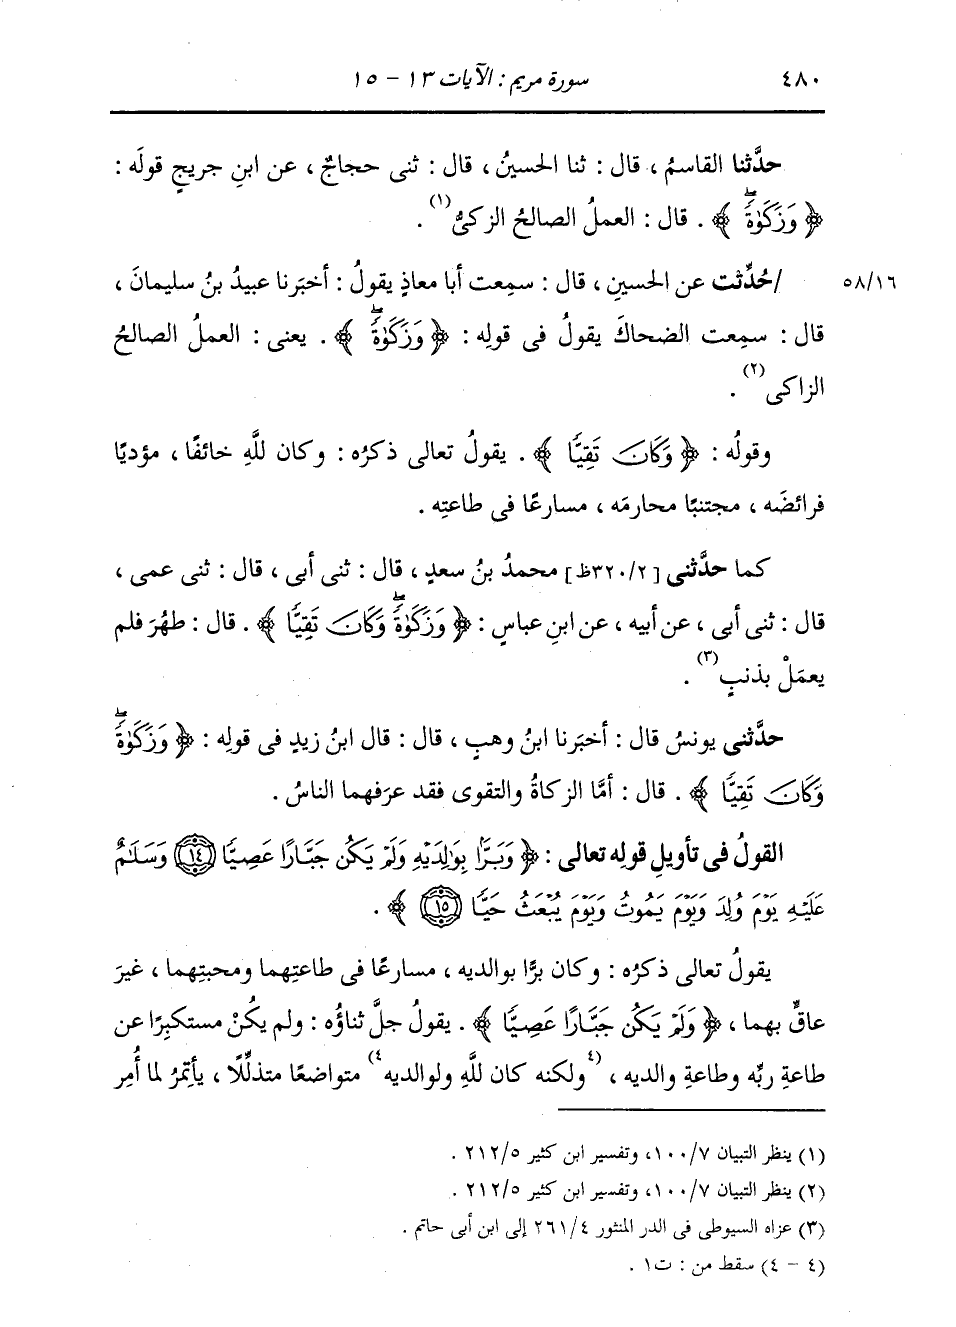 ٤٨٠ سورة مريم : الآيات ١٣ - ١٥
حدَّثنا القاسمُ ، قال : ثنا الحسينُ ، قال : ثنى حجاجٌ ، عن ابنِ جريجٍ قولَه :
﴿ وَزَكَوٰةًۖ ﴾ . قال : العملُ الصالحُ الزكىُّ(١) .
٥٨/١٦ /حُدِّثت عن الحسينِ ، قال : سمِعت أبا معاذٍ يقولُ : أخبَرنا عبيدُ بنُ سليمانَ ،
قال : سمِعت الضحاكَ يقولُ فى قولِه : ﴿ وَزَكَوٰةًۖ ﴾ . يعنى : العملُ الصالحُ
الزاكى(٢) .
وقولُه : ﴿ وَكَانَ تَقِيًّا ﴾ . يقولُ تعالى ذكرُه : وكان للَّهِ خائفًا ، مؤديًا
فرائضَه ، مجتنبًا محارمَه ، مسارعًا فى طاعتِه .
كما حدَّثنى [٣٢٠/٢ظ] محمدُ بنُ سعدٍ ، قال : ثنى أبى ، قال : ثنى عمى ،
قال : ثنى أبى ، عن أبيه ، عن ابنِ عباسٍ : ﴿ وَزَكَوٰةًۖ وَكَانَ تَقِيًّا ﴾ . قال : طهُرَ فلم
يعمَلْ بذنبٍ(٣) .
حدَّثنى يونسُ قال : أخبَرنا ابنُ وهبٍ ، قال : قال ابنُ زيدٍ فى قولِه : ﴿ وَزَكَوٰةًۖ
وَكَانَ تَقِيًّا ﴾ . قال : أمَّا الزكاةُ والتقوى فقد عرَفهما الناسُ .
القولُ فى تأويلِ قولِه تعالى : ﴿ وَبَرًّۢا بِوَٰلِدَيْهِ وَلَمْ يَكُن جَبَّارًا عَصِيًّا ١٤ وَسَلَـٰمٌ
عَلَيْهِ يَوْمَ وُلِدَ وَيَوْمَ يَمُوتُ وَيَوْمَ يُبْعَثُ حَيًّا ١٥ ﴾ .
يقولُ تعالى ذكرُه : وكان برًّا بوالديه ، مسارعًا فى طاعتِهما ومحبتِهما ، غيرَ
عاقٍّ بهما ، ﴿ وَلَمْ يَكُن جَبَّارًا عَصِيًّا ﴾ . يقولُ جلَّ ثناؤُه : ولم يكُنْ مستكبِرًا عن
طاعةِ ربِّه وطاعةِ والديه ، (٤ولكنه كان للَّهِ ولوالديه٤) متواضعًا متذلِّلًا ، يأتَمِرُ لما أُمِر
(١) ينظر التبيان ١٠٠/٧، وتفسير ابن كثير ٢١٢/٥ .
(٢) ينظر التبيان ١٠٠/٧، وتفسير ابن كثير ٢١٢/٥ .
(٣) عزاه السيوطى فى الدر المنثور ٢٦١/٤ إلى ابن أبى حاتم .
(٤ - ٤) سقط من : ت١ .